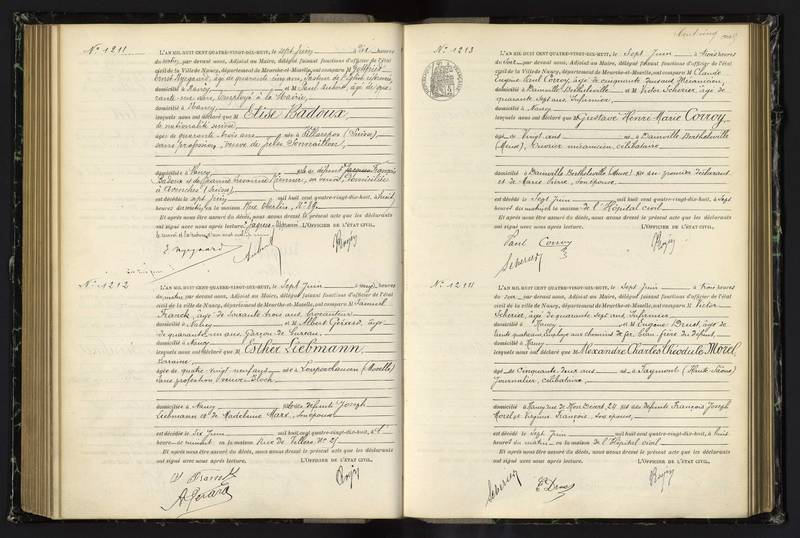 N° 1211
L'AN MIL HUIT CENT QUATRE-VINGT-DIX-HUIT, le sept Juin à dix heures
du matin, par devant nous, Adjoint au Maire, délégué faisant fonctions d'officier de l'état
civil de la Ville de Nancy, département de Meurthe-et-Moselle, ont comparu M Gottfried
Ernst Nyegaard, âgé de quarante cinq ans, Pasteur de l'Église réformée
domicilié à Nancy et M Paul Aubert, âgé de qua
rante-un ans, Employé à la Mairie,
domicilié à Nancy
lesquels nous ont déclaré que M Elise Badoux,
de nationalité suisse,
âgée de quarante-trois ans née à Villarepos (Suisse)
sans profession, veuve de Jules Sonnaillon,
domiciliée à Nancy fille de défunt Jacques François
Badoux et de Jeanne sa veuve, domiciliée
à Avenches (Suisse)
est décédée le sept Juin mil huit cent quatre-vingt-dix-huit, à
heures du matin, en la maison Rue Oberlin, N° 39.
Et après nous être assuré du décès, nous avons dressé le présent acte que les déclarants
ont signé avec nous après lecture. L'OFFICIER DE L'ÉTAT CIVIL,
E. Nyegaard
Aubert
N° 1212
L'AN MIL HUIT CENT QUATRE-VINGT-DIX-HUIT, le Sept Juin à onze heures
du matin, par devant nous, Adjoint au Maire, délégué faisant fonctions d'officier de l'état
civil de la ville de Nancy, département de Meurthe-et-Moselle, ont comparu M Samuel
Franck, âgé de soixante trois ans, brocanteur
domicilié à Nancy et M Albert Gérard, âgé
de quarante-un ans Garçon de bureau
domicilié à Nancy
lesquels nous ont déclaré que M Esther Liebmann
Lorraine
âgée de quatre vingt neuf ans née à Louperhausen (Moselle)
sans profession veuve Bloch
domiciliée à Nancy fille de défunts Joseph
Liebmann et de Madeleine Marx, son épouse
est décédée le Six Juin mil huit cent quatre-vingt-dix-huit, à
heures de minuit en la maison Rue de Villers, N° 21
Et après nous être assuré du décès, nous avons dressé le présent acte que les déclarants
ont signé avec nous après lecture. L'OFFICIER DE L'ÉTAT CIVIL,
A. Gérard
N° 1213
L'AN MIL HUIT CENT QUATRE-VINGT-DIX-HUIT, le Sept Juin à trois heures
du soir, par devant nous, Adjoint au Maire, délégué faisant fonctions d'officier de l'état
civil de la Ville de Nancy, département de Meurthe-et-Moselle, ont comparu M Claude
Eugène Paul Corroy, âgé de cinquante ans, Mécanicien,
domicilié à Dainville Bertheléville et M Victor Scherier, âgé de
quarante sept ans Infirmier
domicilié à Nancy
lesquels nous ont déclaré que M Gustave Henri Marie Corroy,
âgé de Vingt ans né à Dainville Bertheléville
(Meuse), Ouvrier mécanicien, célibataire
domicilié à Dainville Bertheléville (Meuse) fils du premier déclarant
et de Marie son épouse
est décédé le Sept Juin mil huit cent quatre-vingt-dix-huit, à Sept
heures du matin, en la maison de l'Hôpital civil
Et après nous être assuré du décès, nous avons dressé le présent acte que les déclarants
ont signé avec nous après lecture. L'OFFICIER DE L'ÉTAT CIVIL,
Paul Corroy
N° 1214
L'AN MIL HUIT CENT QUATRE-VINGT-DIX-HUIT, le Sept Juin à trois heures
du soir, par devant nous, Adjoint au Maire, délégué faisant fonctions d'officier de l'état
civil de la Ville de Nancy, département de Meurthe-et-Moselle, ont comparu M Victor
Scherier, âgé de quarante sept ans Infirmier
domicilié à Nancy et M Eugène Druet, âgé de
trente quatre ans, Employé aux chemins de fer, beau-frère du défunt
domicilié à Nancy
lesquels nous ont déclaré que M Alexandre Charles Théodule Morel,
âgé de Cinquante deux ans né à Faymont (Haute-Saône)
Journalier, célibataire
domicilié à Nancy rue de Mon Désert, 24 fils des défunts François Joseph
Morel et Virginie François, son épouse
est décédé le Sept Juin mil huit cent quatre-vingt-dix-huit, à huit
heures du matin en la maison de l'Hôpital civil
Et après nous être assuré du décès, nous avons dressé le présent acte que les déclarants
ont signé avec nous après lecture. L'OFFICIER DE L'ÉTAT CIVIL,